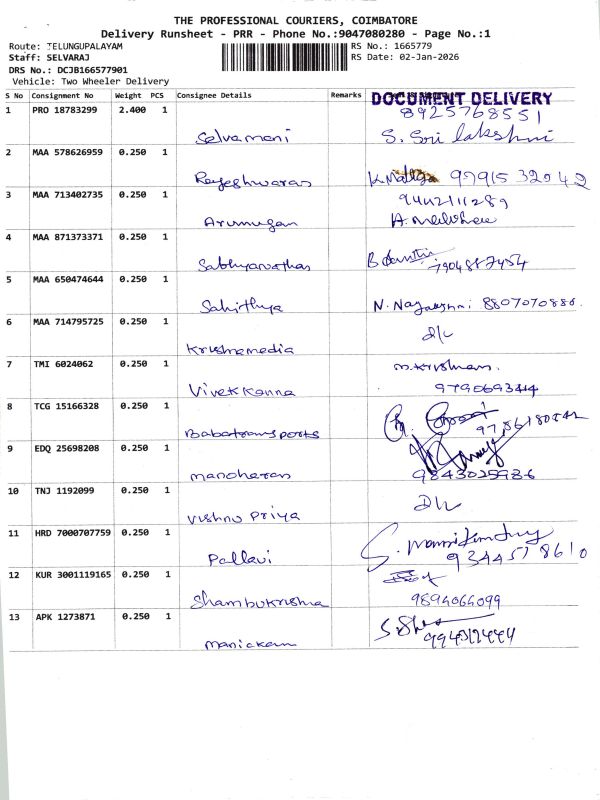 THE PROFESSIONAL COURIERS, COIMBATORE
Delivery Runsheet - PRR - Phone No.:9047080280 - Page No.:1
Route: TELUNGUPALAYAM
RS No.: 1665779
Staff: SELVARAJ
RS Date: 02-Jan-2026
DRS No.: DCJB166577901
Vehicle: Two Wheeler Delivery
S No Consignment No Weight PCS Consignee Details Remarks
DOCUMENT DELIVERY
1 PRO 18783299 2.400 1
8925768551
Selvamani S. Sri lakshmi
2 MAA 578626959 0.250 1
Rajeshwaran K. Malliga 97915 32042
3 MAA 713402735 0.250 1
9442111289
Arumugan
4 MAA 871373371 0.250 1
Sabhyanathan 7904887454
5 MAA 650474644 0.250 1
Sahithya N. Nagalakshmi 8807070886.
6 MAA 714795725 0.250 1
D/L
Krishnamedia
7 TMI 6024062 0.250 1
m.krishnan.
Vivek Kanna 9790693414
8 TCG 15166328 0.250 1
Babatransports
9 EDQ 25698208 0.250 1
manoharan 9843025936
10 TNJ 1192099 0.250 1
D/L
Vishnu Priya
11 HRD 7000707759 0.250 1
Pallavi 9344578610
12 KUR 3001119165 0.250 1
Shambukrishna 9894064099
13 APK 1273871 0.250 1
manickam